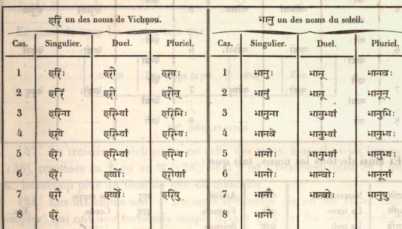 हरि un des noms de Vichnou. भानु un des noms du soleil.
Cas. Singulier. Duel. Pluriel. Cas. Singulier. Duel. Pluriel.
1 हरिः हरी हरयः 1 भानुः भानू भानवः
2 हरिं हरी हरीन् 2 भानुं भानू भानून्
3 हरिणा हरिभ्यां हरिभिः 3 भानुना भानुभ्यां भानुभिः
4 हरये हरिभ्यां हरिभ्यः 4 भानवे भानुभ्यां भानुभ्यः
5 हरेः हरिभ्यां हरिभ्यः 5 भानोः भानुभ्यां भानुभ्यः
6 हरेः हर्योः हरीणां 6 भानोः भान्वोः भानूनां
7 हरौ हर्योः हरिषु 7 भानौ भान्वोः भानुषु
8 हरे 8 भानो